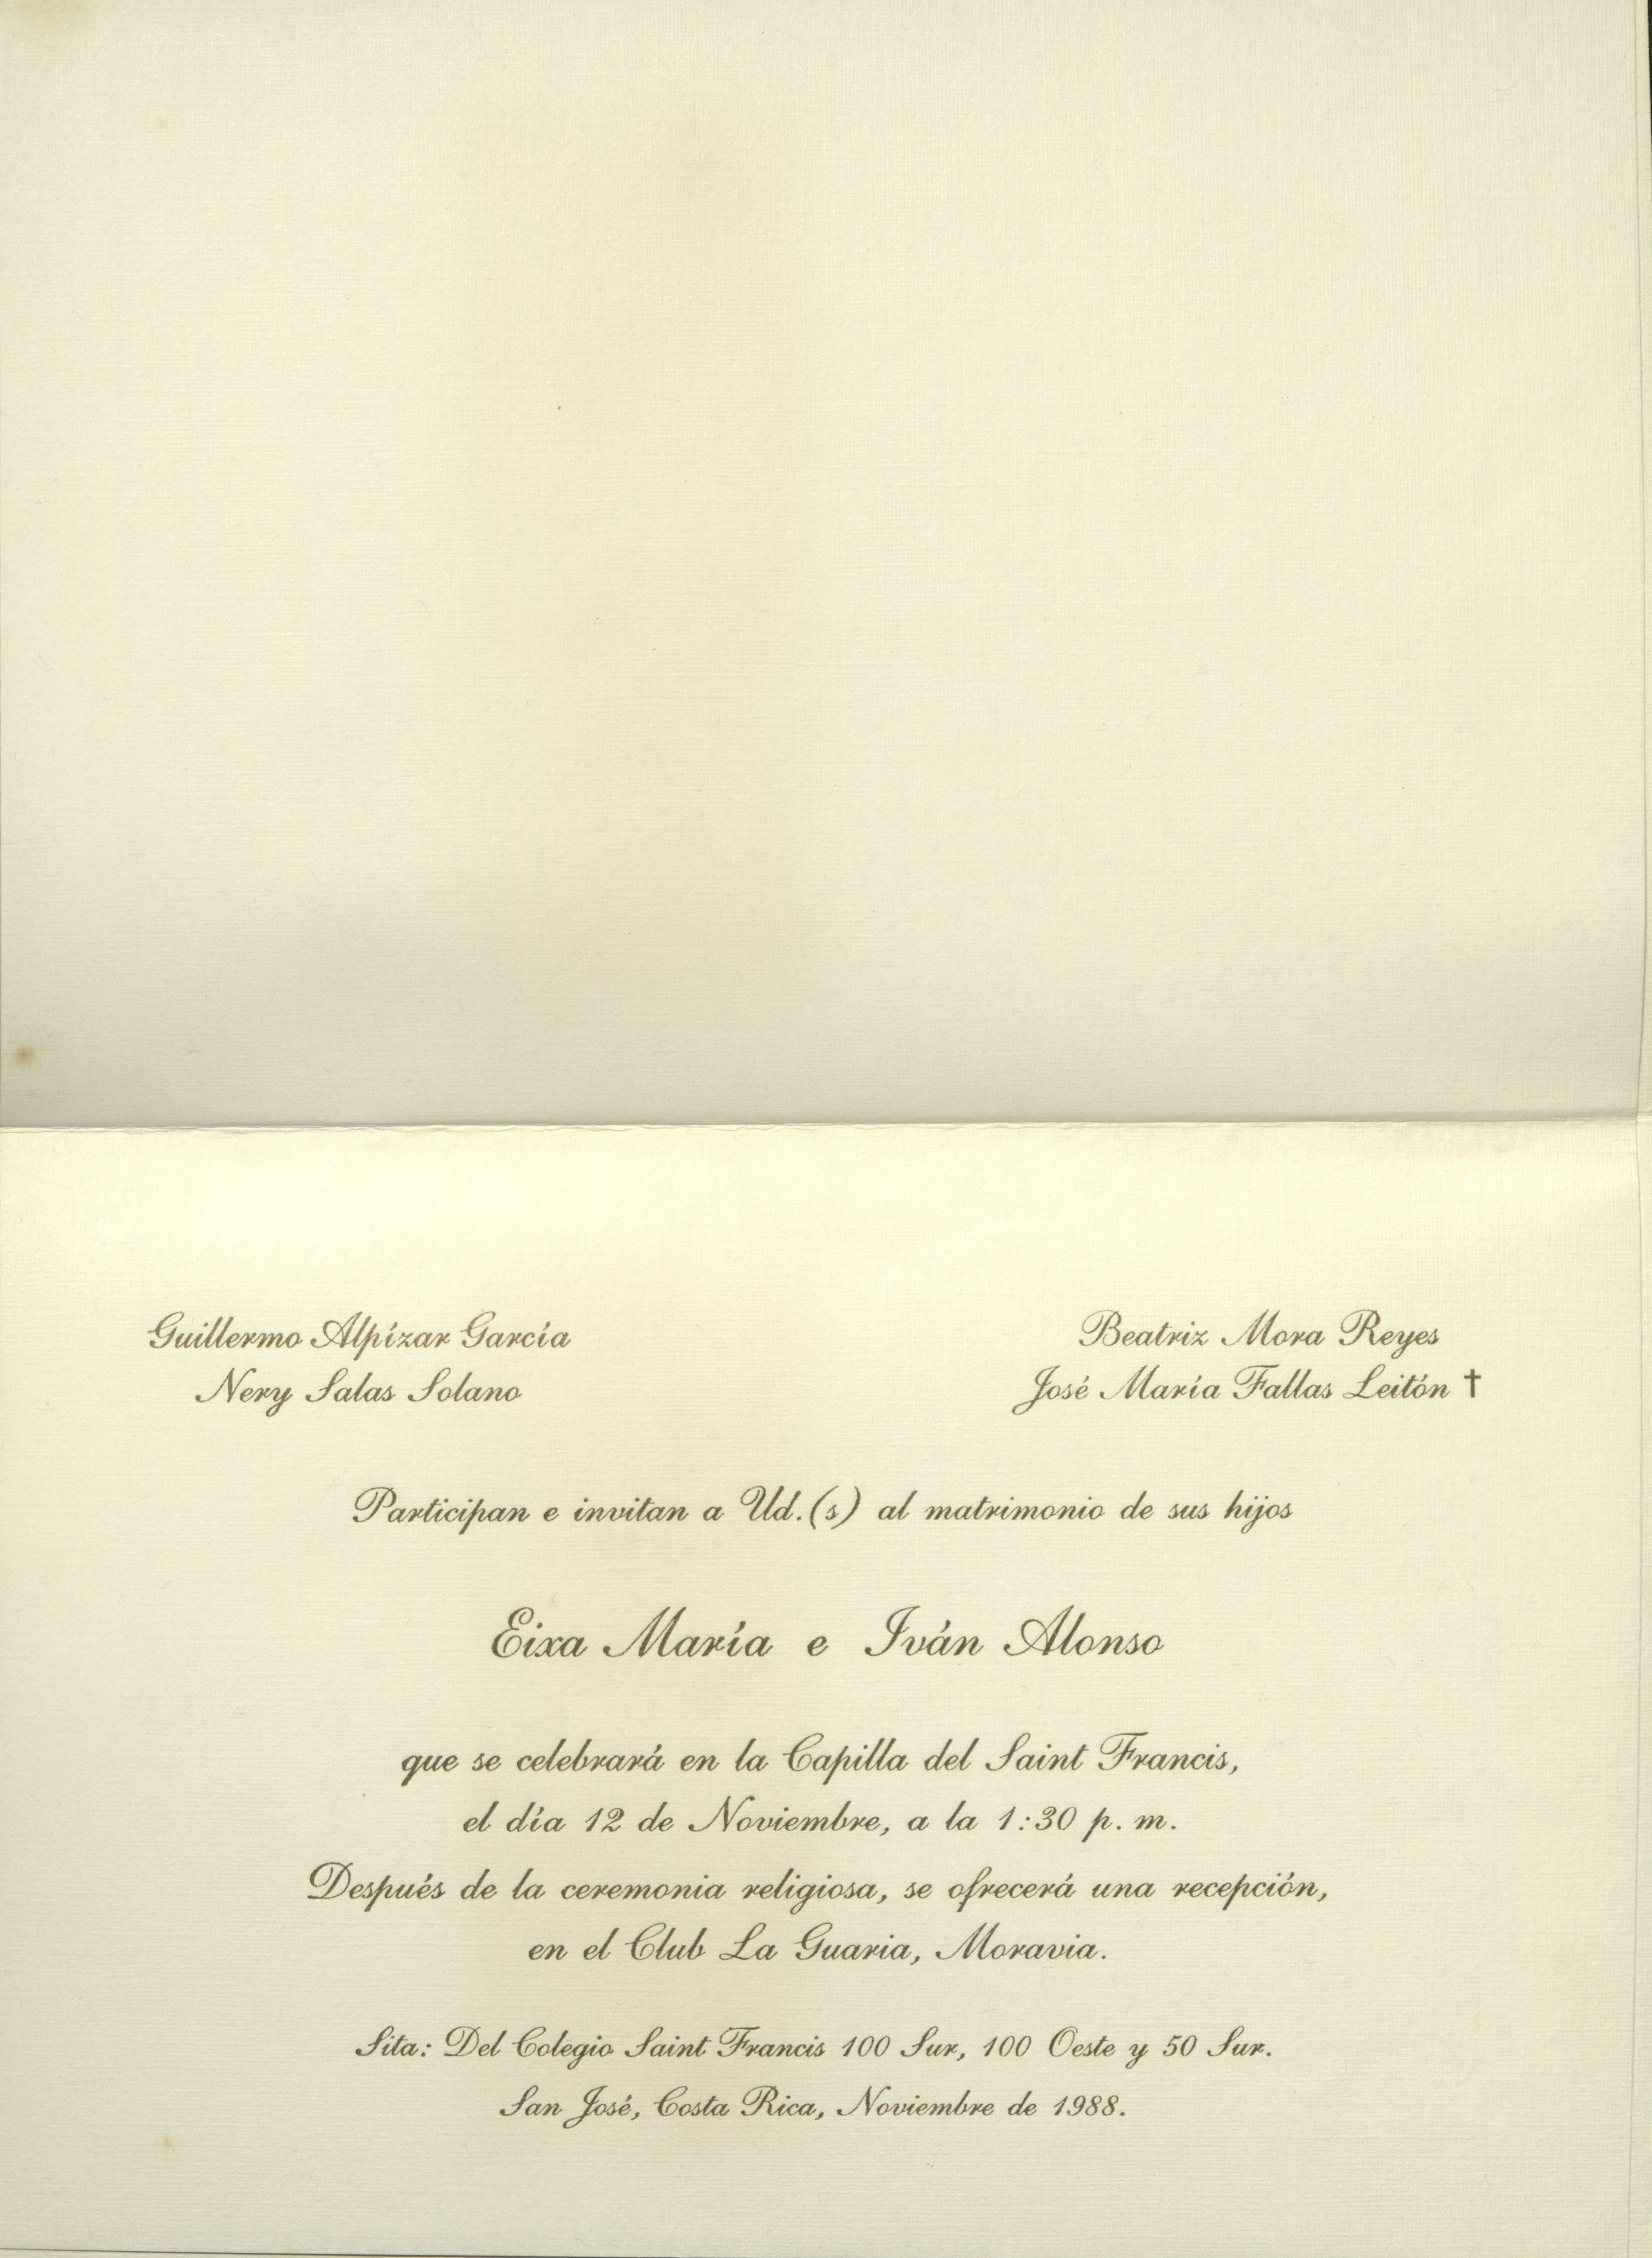 Guillermo Alpízar García
Nery Salas Solano
Beatriz Mora Reyes
José María Fallas Leitón †
Participan e invitan a Ud.(s) al matrimonio de sus hijos
Eixa María e Iván Alonso
que se celebrará en la Capilla del Saint Francis,
el día 12 de Noviembre, a la 1:30 p. m.
Después de la ceremonia religiosa, se ofrecerá una recepción,
en el Club La Guaria, Moravia.
Sita: Del Colegio Saint Francis 100 Sur, 100 Oeste y 50 Sur.
San José, Costa Rica, Noviembre de 1988.